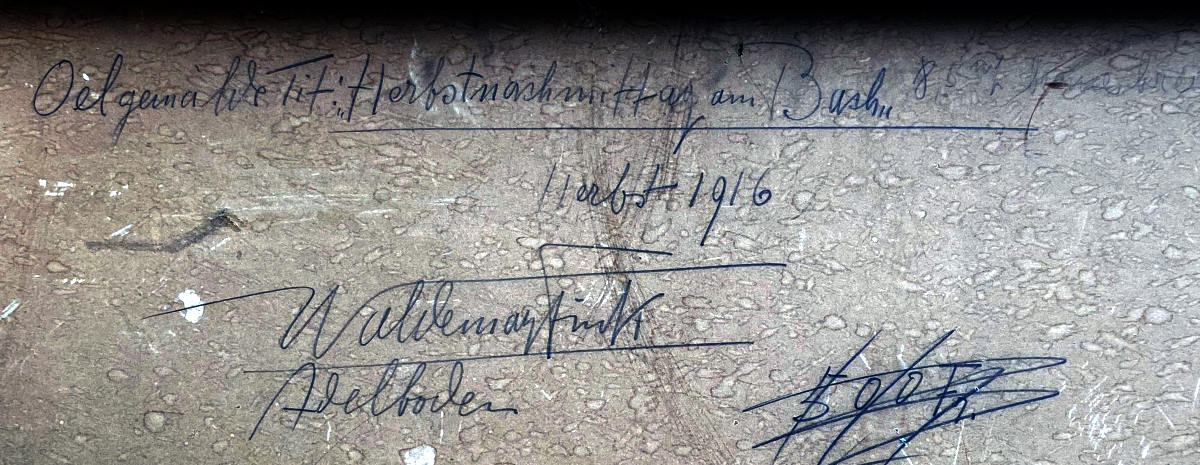 Oelgemälde Tit: „Herbstnachmittag am Bach„
Herbst 1916
Waldemar Fink
Adelboden